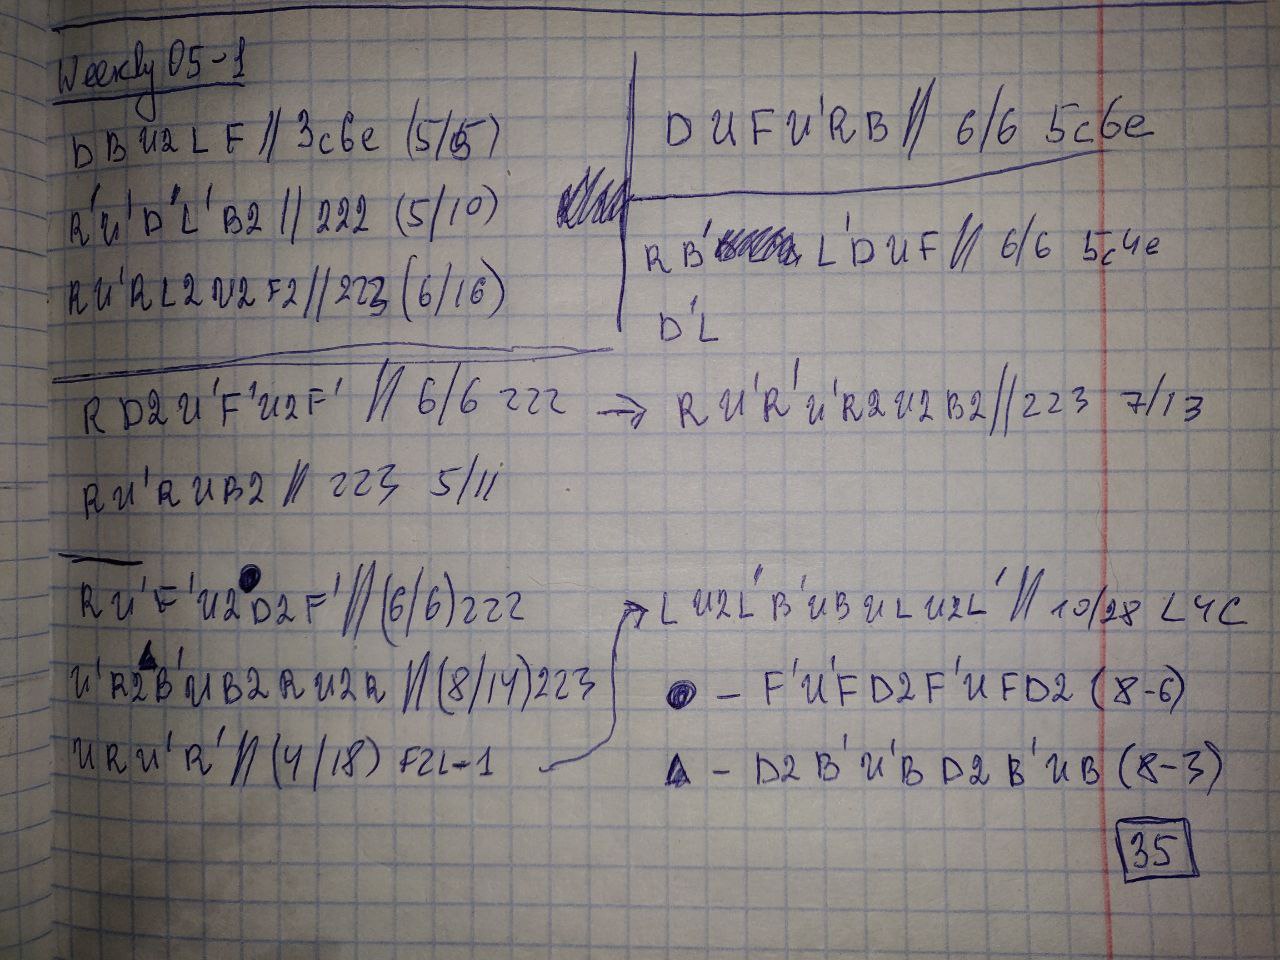 Weekly 05-1
D B U2 L F // 3c6e (5/5)
R' U' D' L' B2 // 222 (5/10)
R U' R L2 U2 F2 // 223 (6/16)
D U F U' R B // 6/6 5c6e
R B' L' D U F // 6/6 5c4e
D' L
R D2 U' F' U2 F' // 6/6 222 → R U' R' U' R2 U2 B2 // 223 7/13
R U' R U B2 // 223 5/11
R U' F' U2 ● D2 F' // (6/6) 222
U' R2 ▲ B' U B2 R U2 R // (8/14) 223
U R U' R' // (4/18) F2L-1
→ L U2 L' B' U B U L U2 L' // 10/28 L4C
● - F' U' F D2 F' U F D2 (8-6)
▲ - D2 B' U' B D2 B' U B (8-3)
35